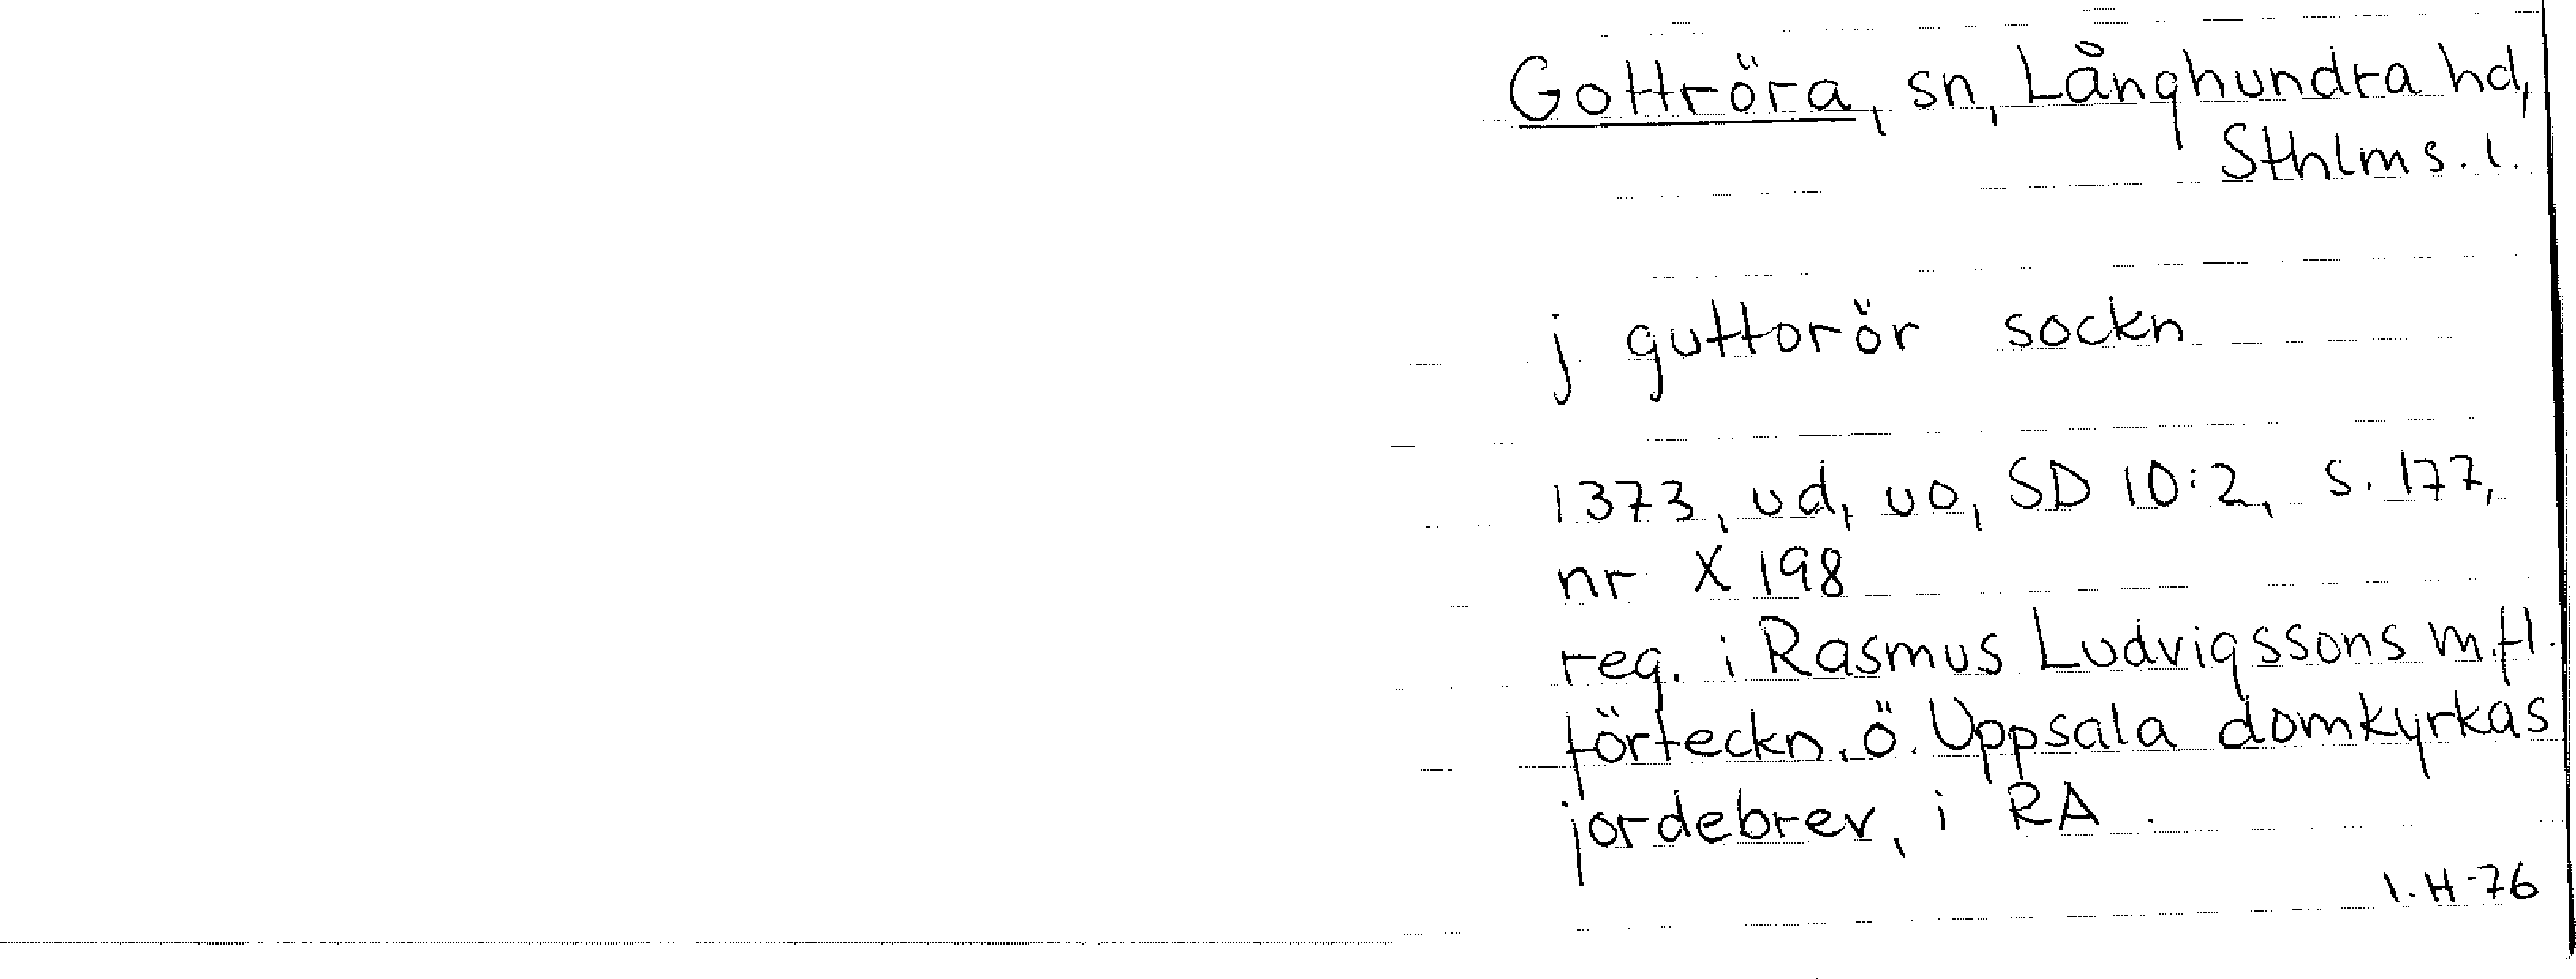 Gottröra, sn, Långhundra hd,
Sthlms. l.
j guttorör sockn
1373, ud, uo, SD 10:2, s. 177,
nr X 198
reg. i Rasmus Ludvigssons m.fl.
förteckn. ö. Uppsala domkyrkas
jordebrev, i RA.
I.H-76